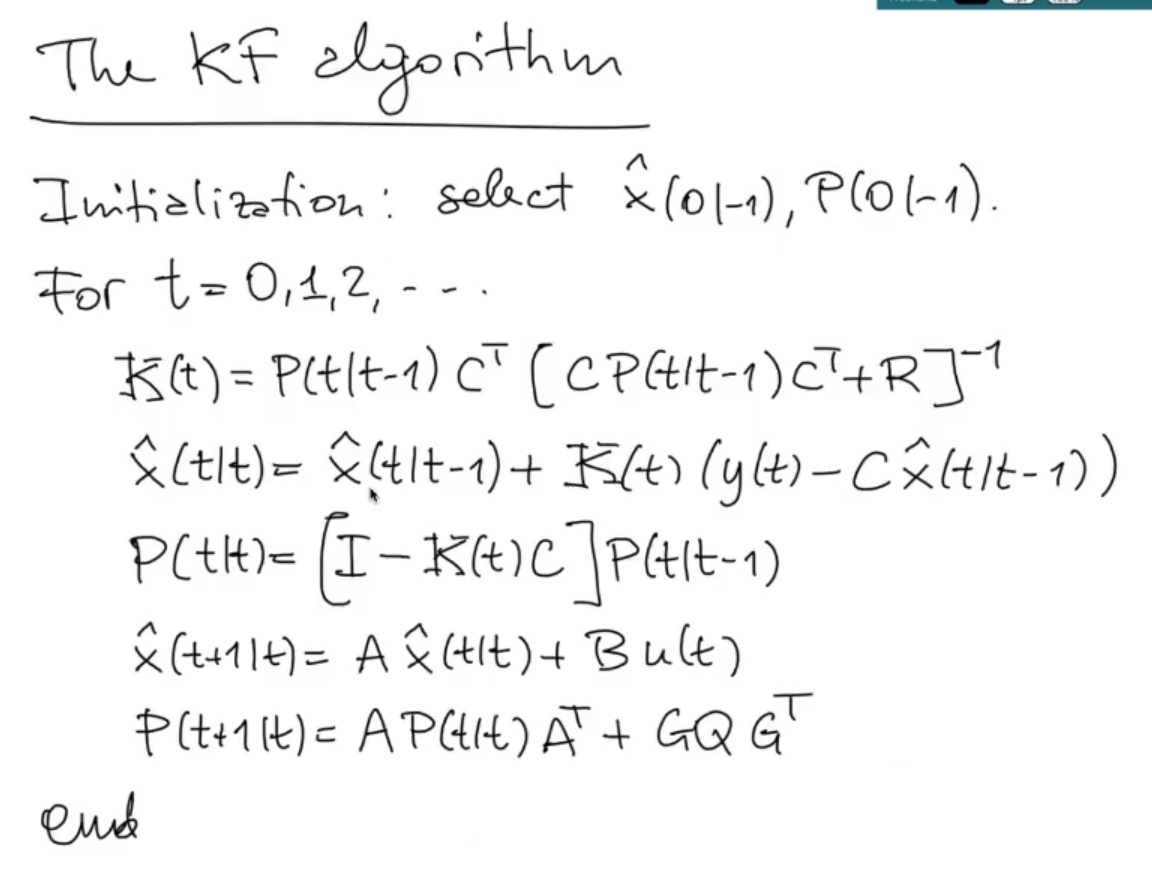 The KF algorithm
Initialization: select x̂(0|-1), P(0|-1).
For t=0,1,2, - - - .
K̄(t) = P(t|t-1) Cᵀ [ C P(t|t-1) Cᵀ + R ]⁻¹
x̂(t|t) = x̂(t|t-1) + K̄(t) (y(t) - C x̂(t|t-1))
P(t|t) = [I - K̄(t) C] P(t|t-1)
x̂(t+1|t) = A x̂(t|t) + B u(t)
P(t+1|t) = A P(t|t) Aᵀ + G Q Gᵀ
end